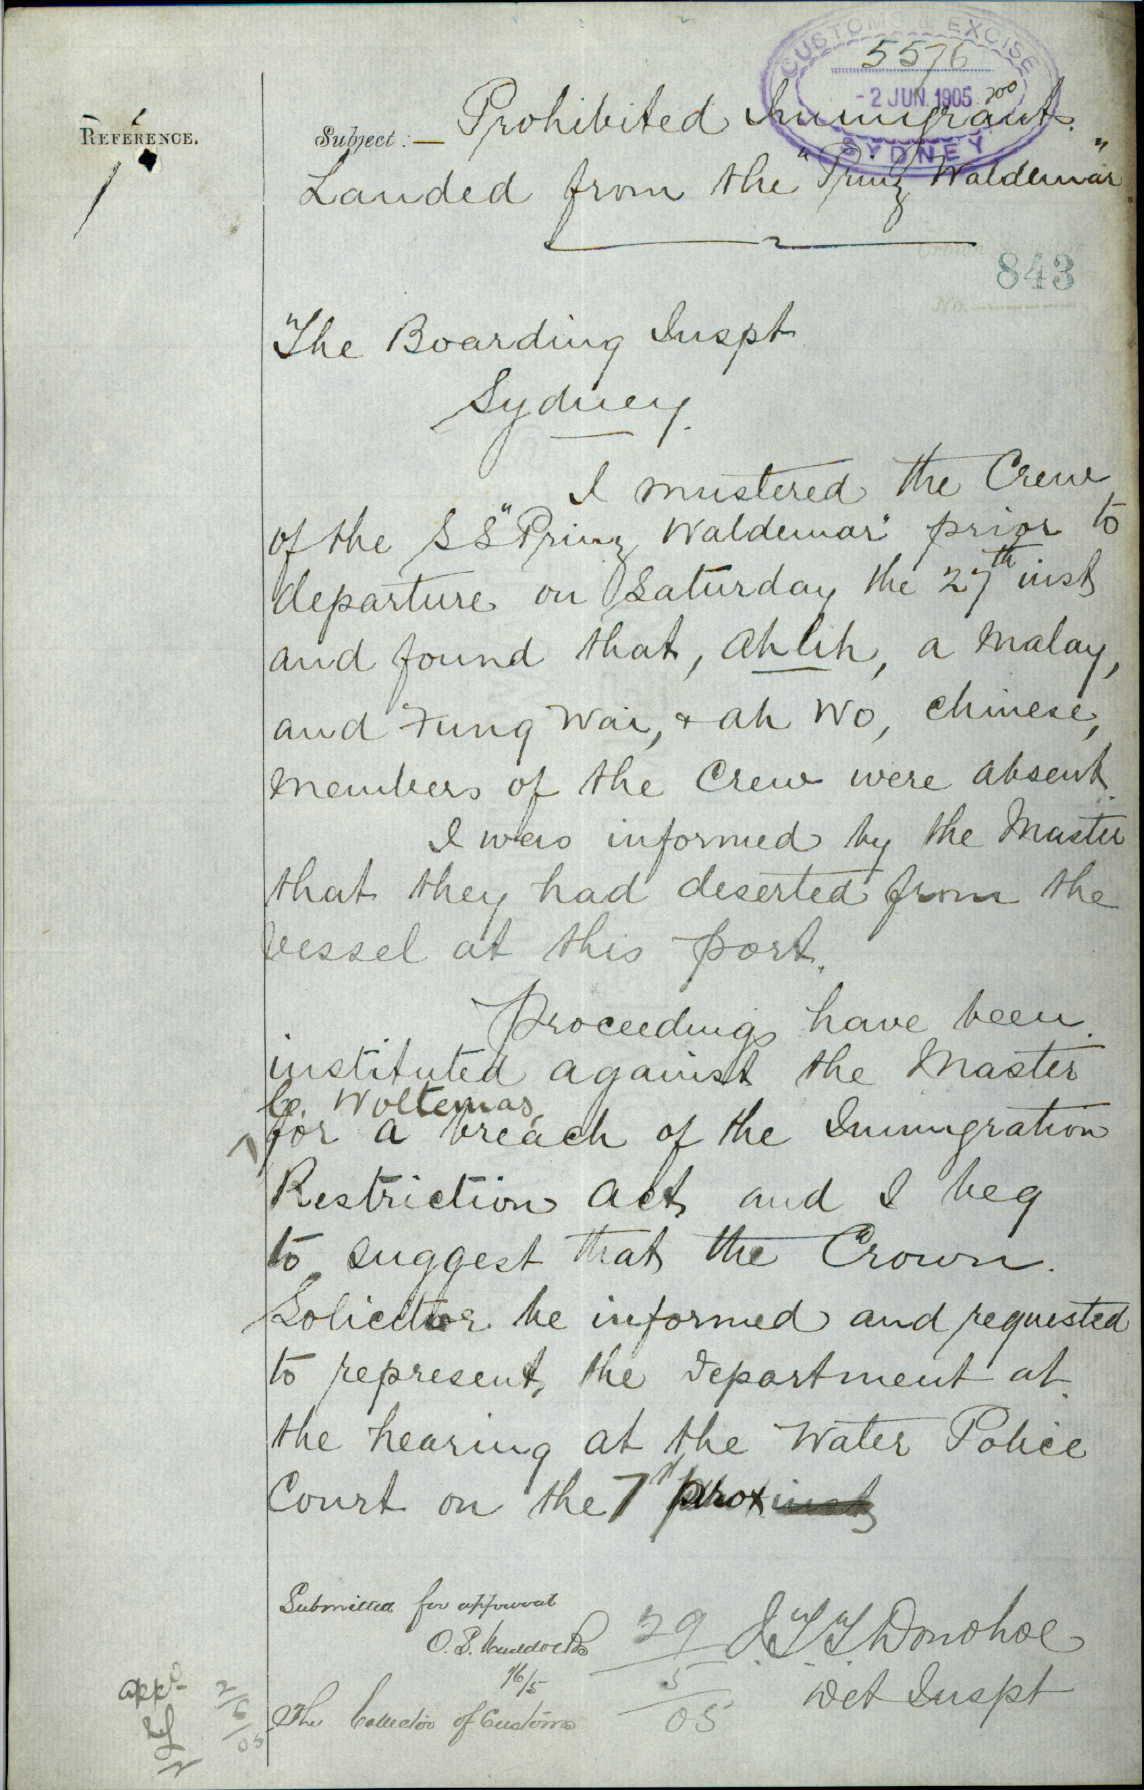 CUSTOMS & EXCISE
5576
- 2 JUN. 1905
SYDNEY
REFERENCE.
Subject:— Prohibited Immigrants.
Landed from the "Prinz Waldemar"
843
No.
The Boarding Inspt
Sydney.
I mustered the Crew
of the SS "Prinz Waldemar" prior to
departure on Saturday the 27th inst
and found that, Ah Lih, a Malay,
and Fung Wai, & Ah Wo, Chinese,
members of the Crew were absent.
I was informed by the Master
that they had deserted from the
vessel at this port.
Proceedings have been
instituted against the Master
C. Woltemas,
for a breach of the Immigration
Restriction Act and I beg
to suggest that the Crown
Solicitor be informed and requested
to represent the Department at
the hearing at the Water Police
Court on the 7th prox inst
Submitted for approval
29/5/05
J T T Donohoe
Det Inspt
The Collector of Customs
appd
2/6/05